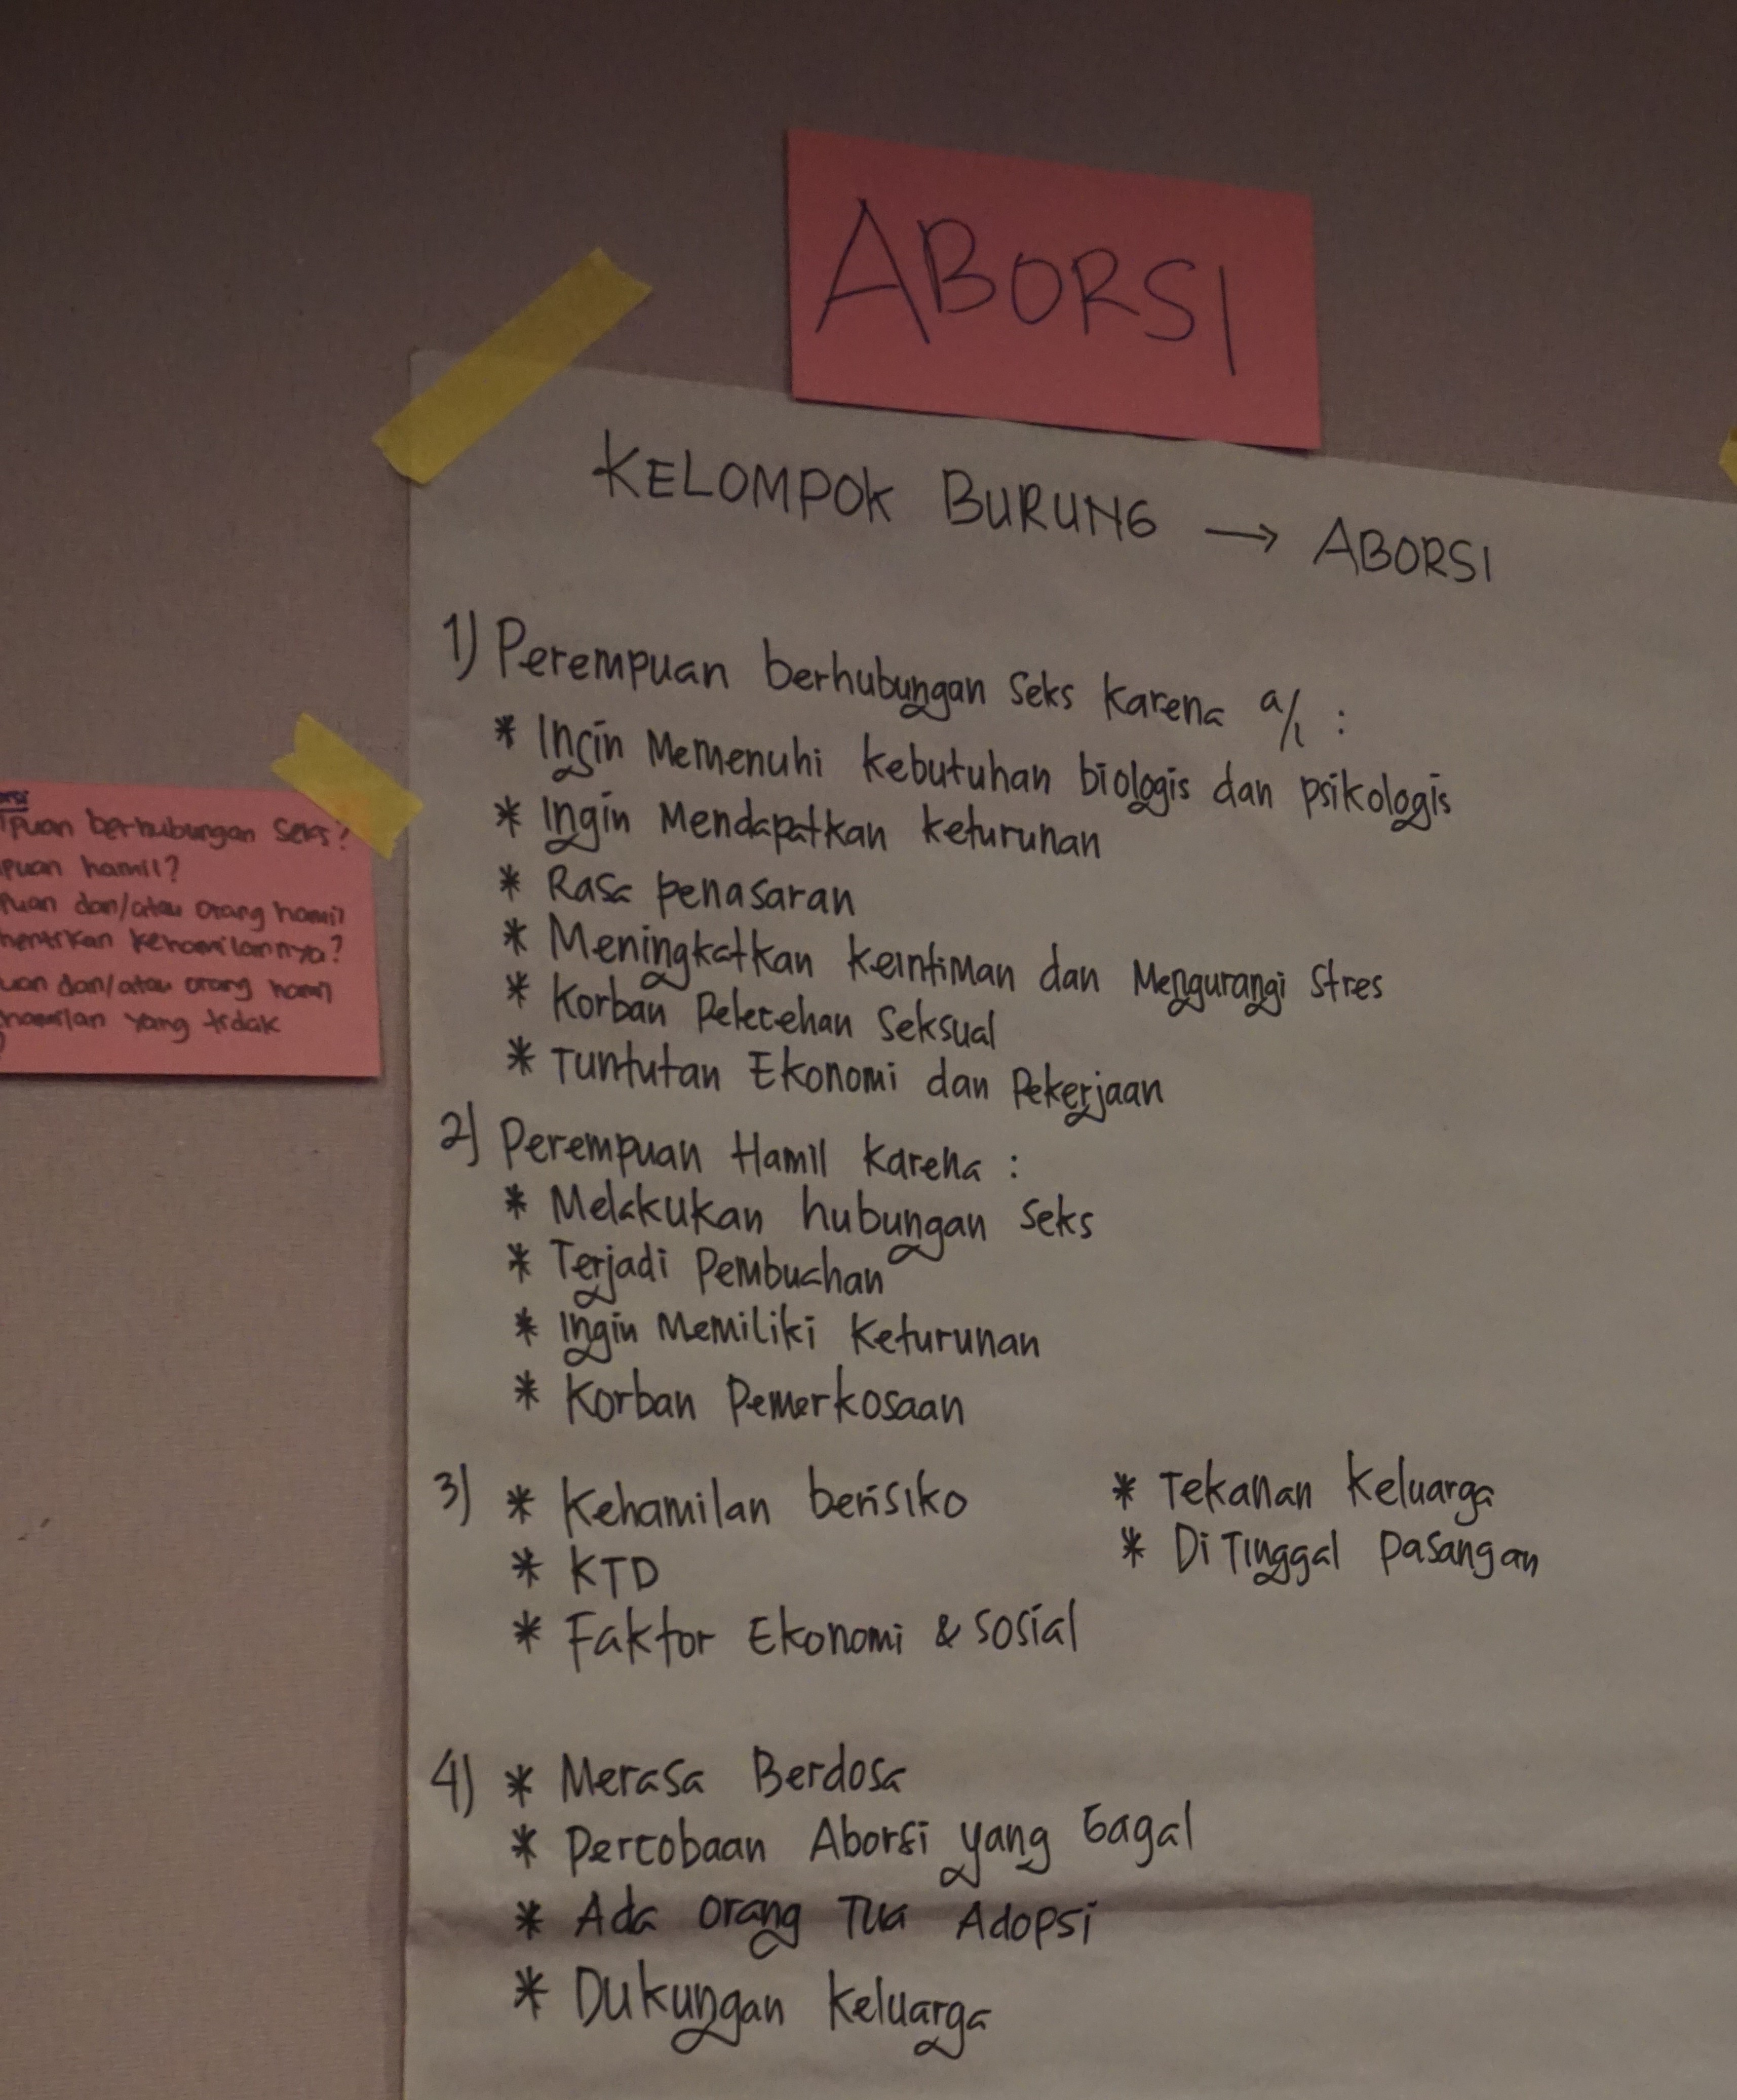 ABORSI
KELOMPOK BURUNG → ABORSI
1) Perempuan berhubungan seks karena a/l :
* Ingin Memenuhi kebutuhan biologis dan psikologis
* Ingin Mendapatkan keturunan
* Rasa penasaran
* Meningkatkan keintiman dan Mengurangi Stres
* Korban Pelecehan Seksual
* Tuntutan Ekonomi dan Pekerjaan
2) Perempuan Hamil karena :
* Melakukan hubungan seks
* Terjadi Pembuahan
* Ingin Memiliki Keturunan
* Korban Pemerkosaan
3) * Kehamilan berisiko * Tekanan Keluarga
* KTD * Di Tinggal Pasangan
* Faktor Ekonomi & sosial
4) * Merasa Berdosa
* Percobaan Aborsi yang Gagal
* Ada orang Tua Adopsi
* Dukungan Keluarga
puan berhubungan Seks?
puan hamil?
puan dan/atau orang hamil
hentikan kehamilannya?
uan dan/atau orang hamil
hamilan yang tidak